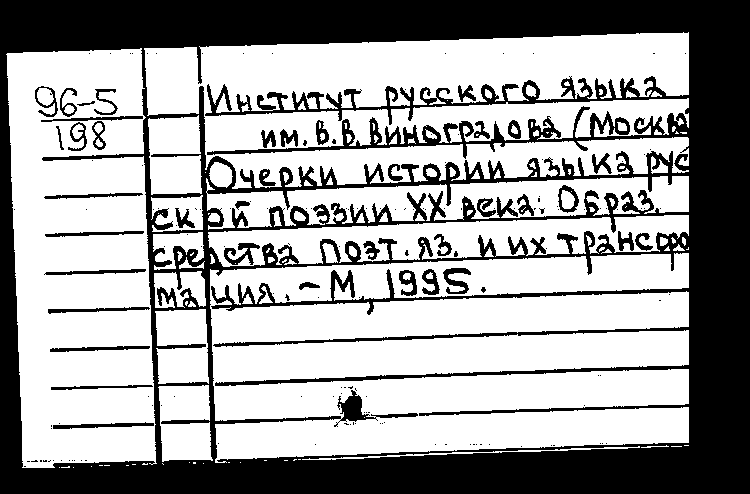 96-5
198
Институт русского языка
им. В.В. Виноградова (Москва
Очерки истории языка рус
ской поэзии XX века: Образ.
средства поэт. яз. и их трансфо
мация. - М., 1995.